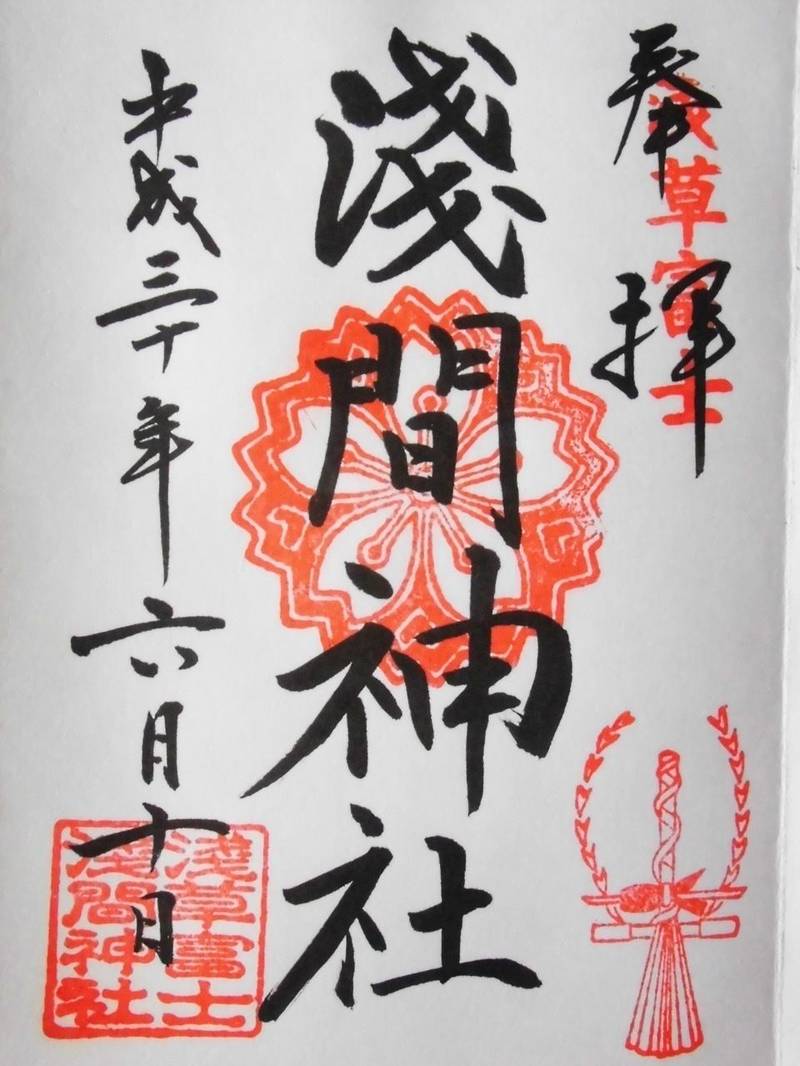 奉拝
浅草富士
淺間神社
平成三十年六月十日
淺草富士
淺間神社